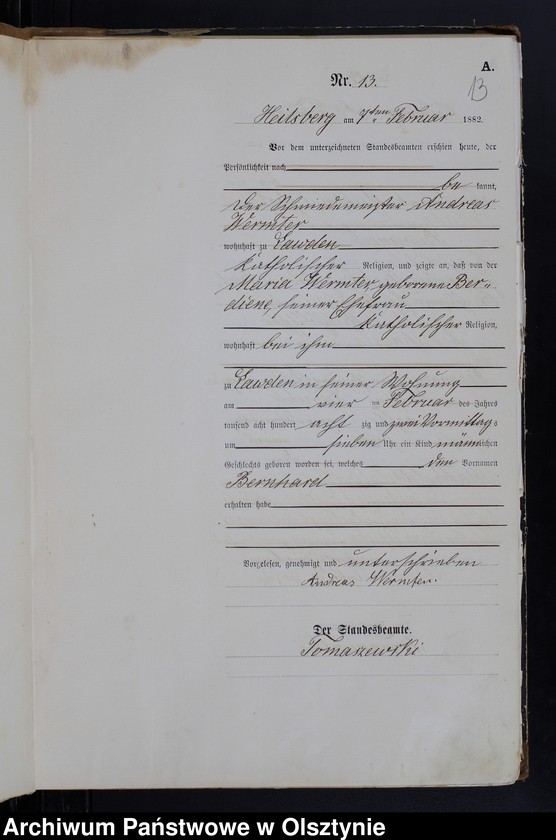 A.
Nr. 13.
13
Heilsberg am 7ten Februar 1882.
Vor dem unterzeichneten Standesbeamten erschien heute, der
Persönlichkeit nach
be kannt,
der Schmiedemeister Andreas
Wermter
wohnhaft zu Lawden
katholischer Religion, und zeigte an, daß von der
Maria Wermter, geborene Ber-
diene, seiner Ehefrau
katholischer Religion,
wohnhaft bei ihm
zu Lawden in seiner Wohnung
am vier ten Februar des Jahres
tausend acht hundert acht zig und zwei Vormittags
um sieben Uhr ein Kind männlichen
Geschlechts geboren worden sei, welches den Vornamen
Bernhard
erhalten habe
Vorgelesen, genehmigt und unterschrieben
Andreas Wermter.
Der Standesbeamte.
Tomaszewski
Archiwum Państwowe w Olsztynie